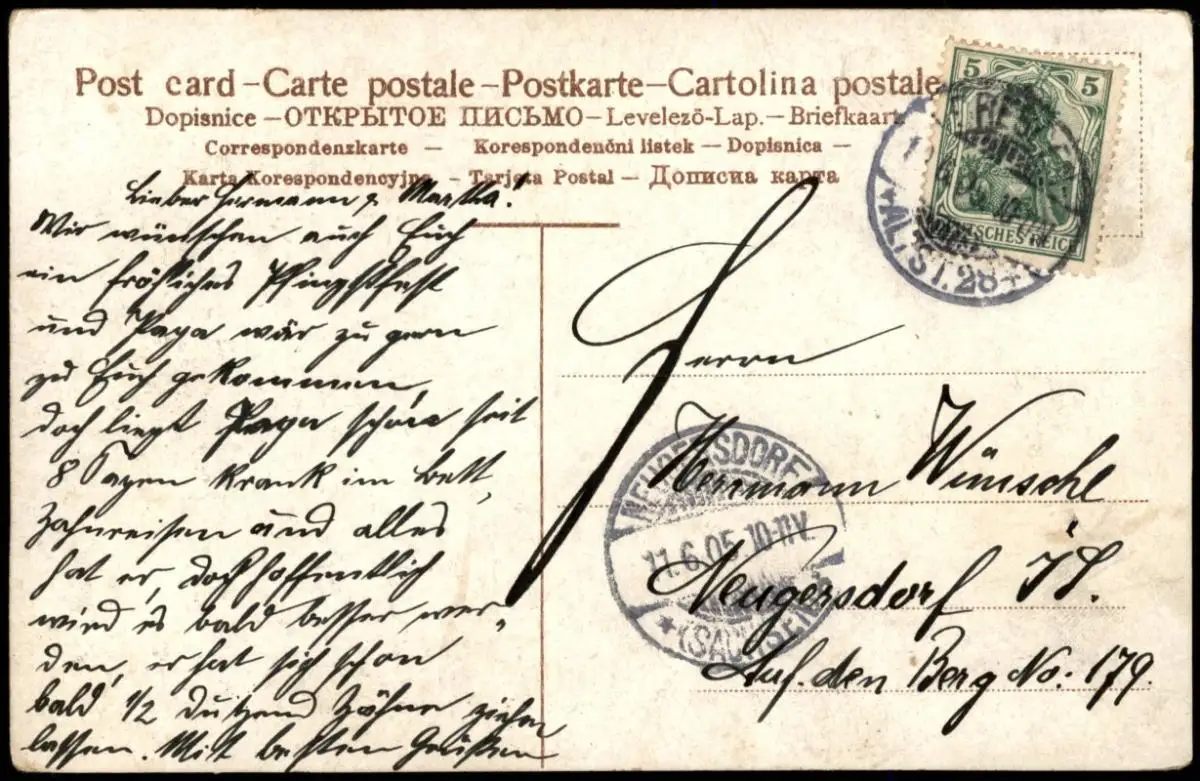 Post card – Carte postale – Postkarte – Cartolina postale
Dopisnice – ОТКРЫТОЕ ПИСЬМО – Levelezö-Lap. – Briefkaart
Correspondenzkarte – Korespondenčni listek – Dopisnica –
Karta Korespondencyjna – Tarjeta Postal – Дописна карта
Lieber Hermann & Martha!
Wir wünschen auch Euch
ein fröhliches Pfingstfest
und Papa wär zu gern
zu Euch gekommen,
doch liegt Papa schon seit
8 Tagen krank im Bett,
Zahnreisen und alles
hat er, doch hoffentlich
wird es bald besser wer-
den, er hat sich schon
bald 1/2 Dutzend Zähne ziehen
lassen. Mit besten Grüßen
5 5
DEUTSCHES REICH
DRESDEN
ALTST. 28
Herrn
Herrmann Wünsche
Neugersdorf i/S.
Auf den Berg No: 179.
NEUGERSDORF
11.6.05. 10-11V.
* (SACHSEN)